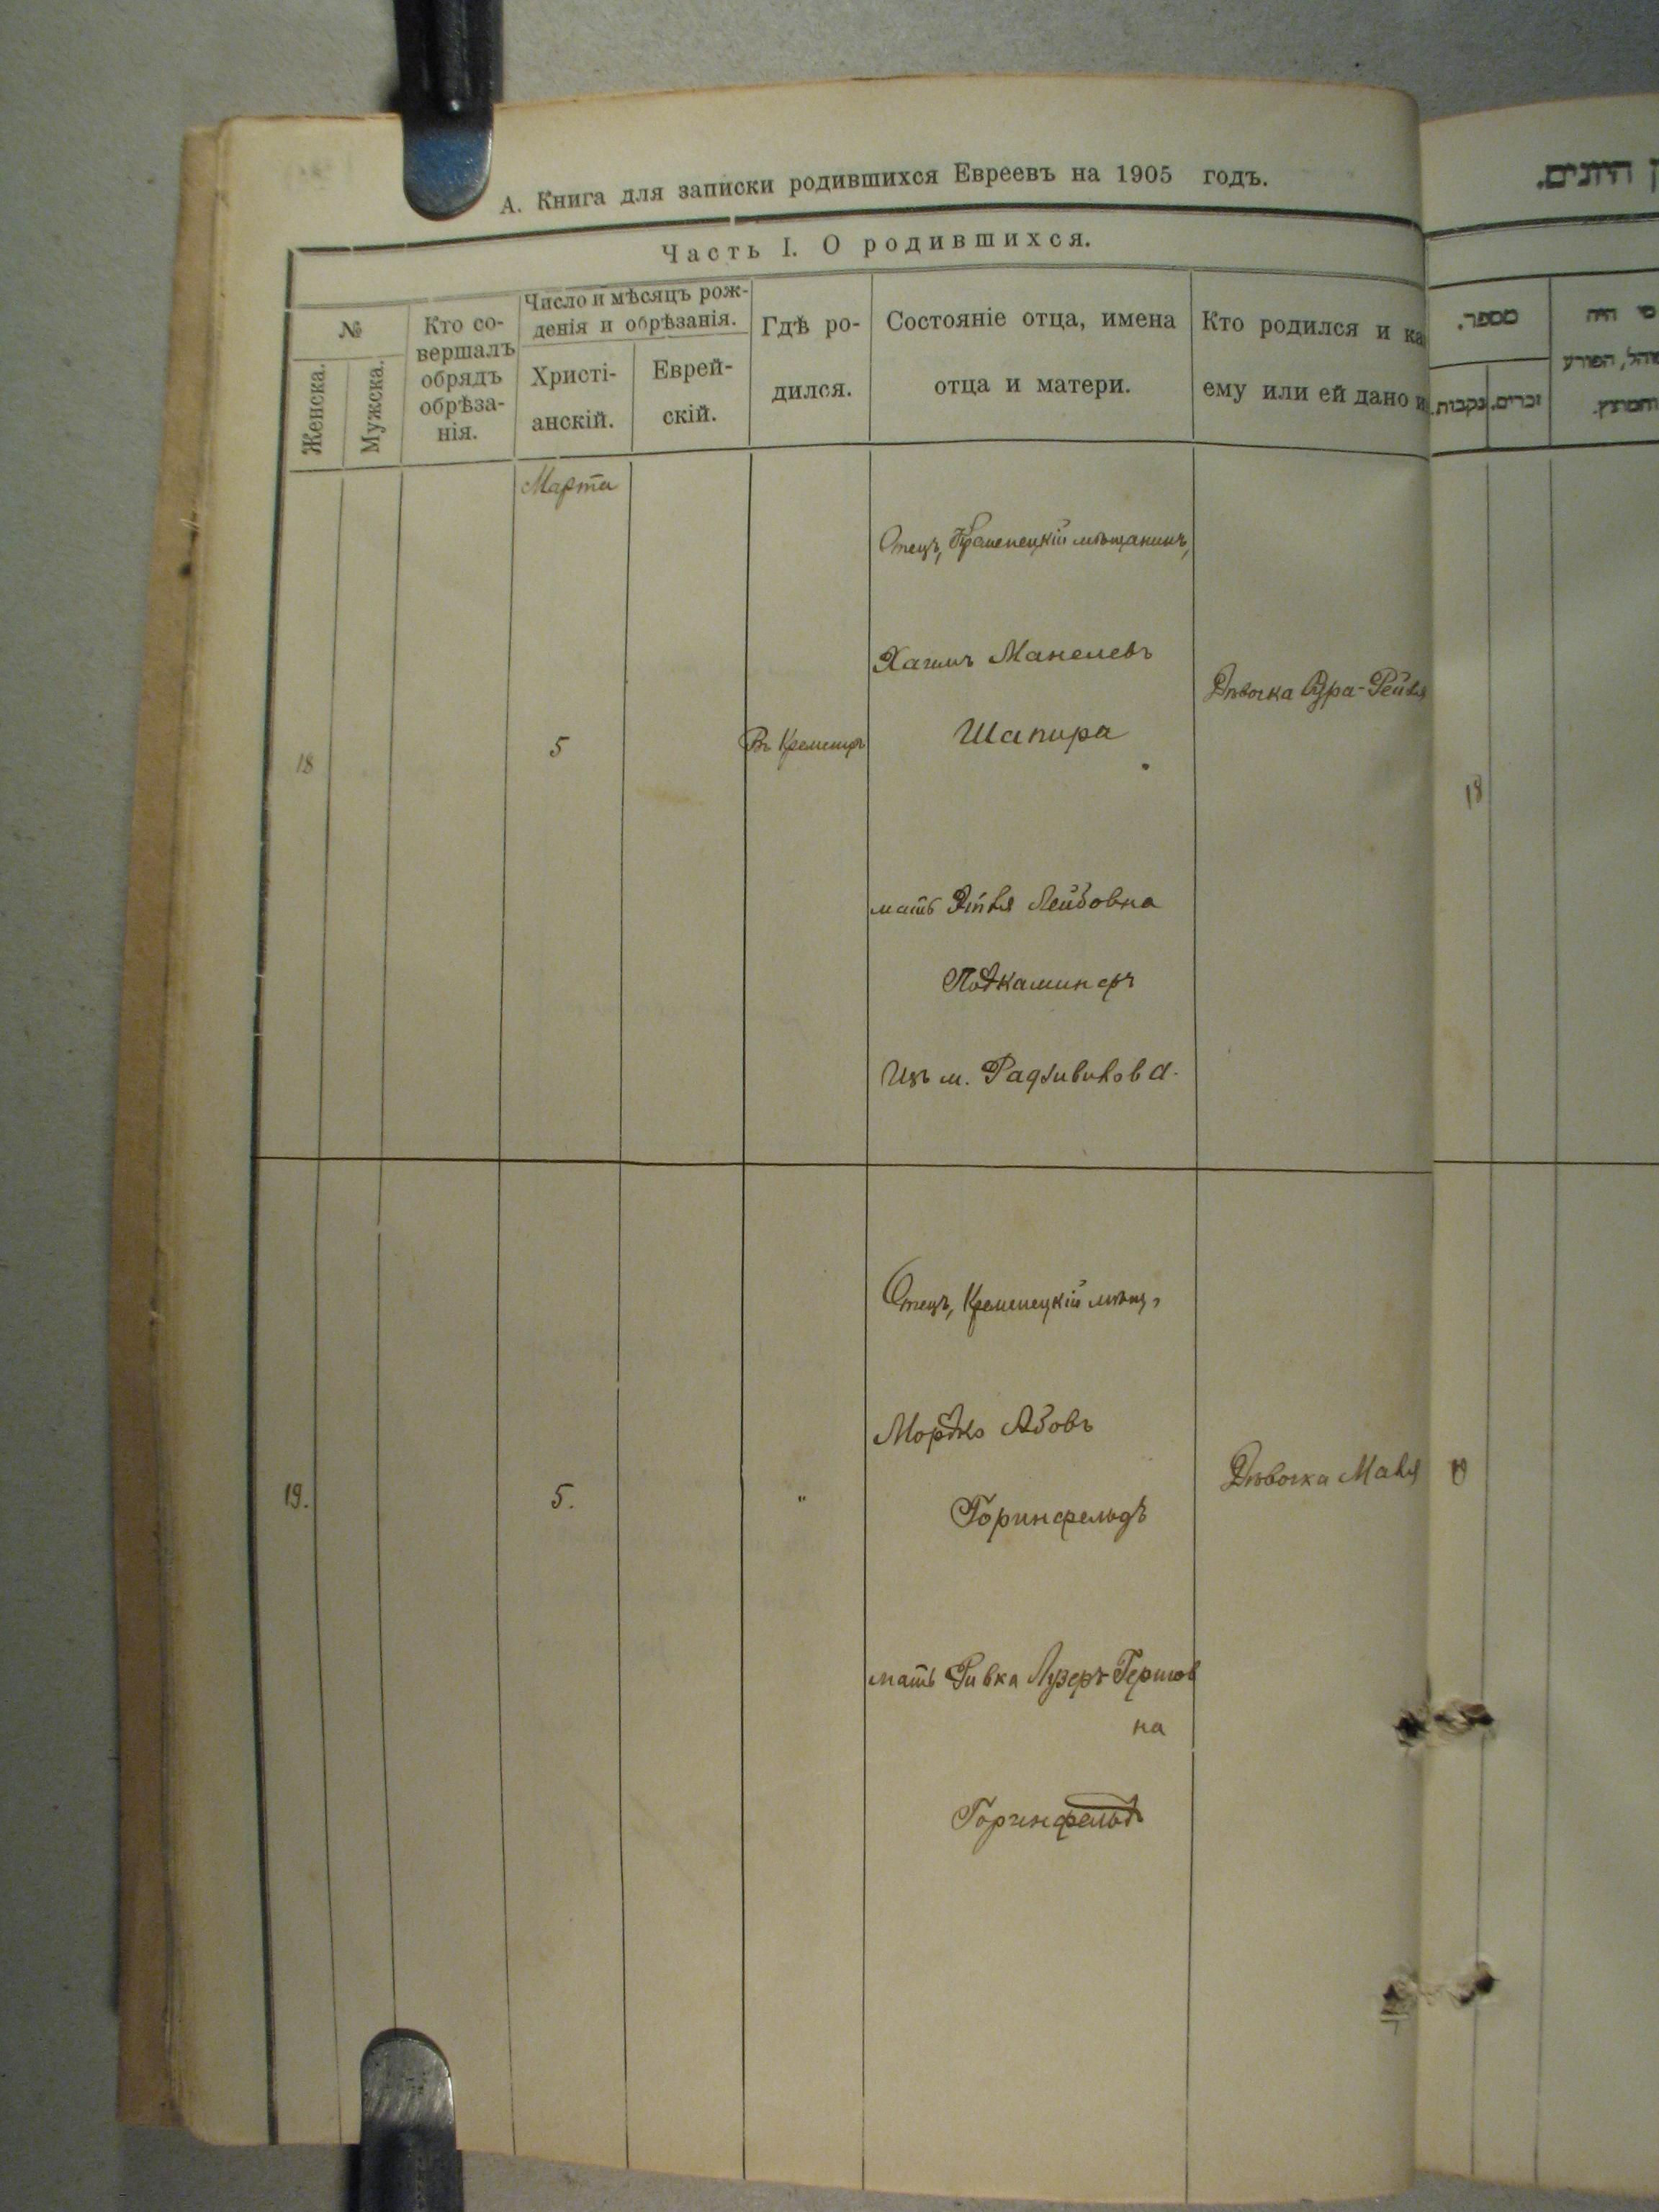 А. Книга для записки родившихся Евреевъ на 1905 годъ.
Часть I. О родившихся.
№
Женска.
Мужска.
Кто со-
вершалъ
обрядъ
обрѣза-
нія.
Число и мѣсяцъ рож-
денія и обрѣзанія.
Христі-
анскій.
Еврей-
скій.
Гдѣ ро-
дился.
Состояніе отца, имена
отца и матери.
Кто родился и ка
ему или ей дано и
Марта
18
5
Въ Кременцѣ
Отецъ, Кременецкій мѣщанинъ,
Хаимъ Манелевъ
Шапира
мать Этля Лейбовна
Подкаминеръ
Изъ м. Радзивилова.
Дѣвочка Сура-Рейзя
19.
5.
"
Отецъ, Кременецкій мѣщ.
Мордко Абовъ
Горинфельдъ
мать Ривка Лузеръ-Гершов
на
Горинфельдъ
Дѣвочка Маля
היונים.
מספר.
נקבות.
זכרים.
מי היה
הפורע
והמוצץ.
18
19